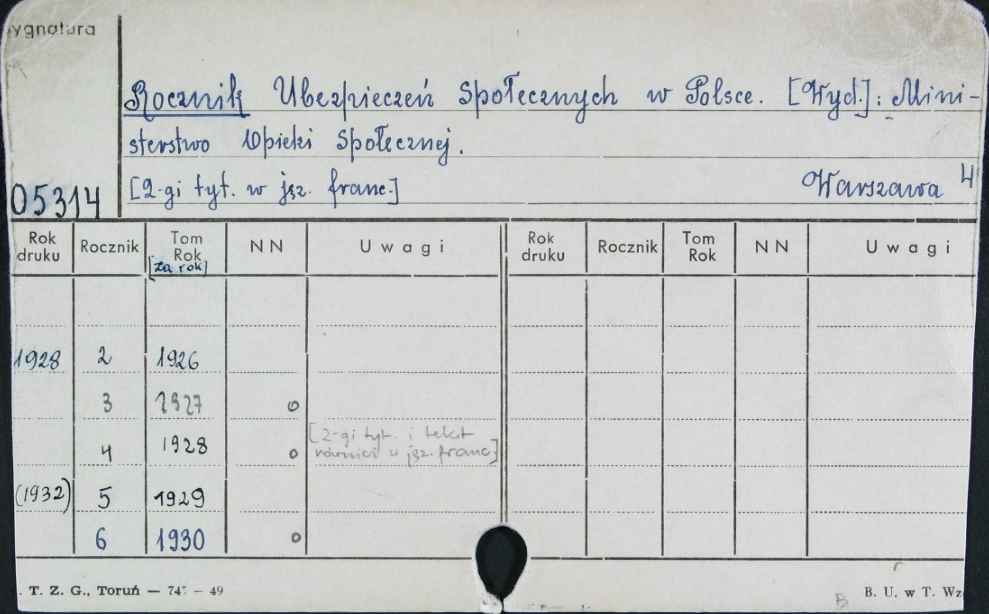 ygnatura
Rocznik Ubezpieczeń Społecznych w Polsce. [Wyd.]: Mini-
sterstwo Opieki Społecznej.
[2-gi tyt. w jęz. franc.] Warszawa 4
05314
Rok druku Rocznik Tom Rok [za rok] NN Uwagi Rok druku Rocznik Tom Rok NN Uwagi
1928 2 1926
3 1927 o
4 1928 o [2-gi tyt. i tekst
również w jęz. franc]
(1932) 5 1929
6 1930 o
T. Z. G., Toruń — 747 — 49 B. U. w T. Wz
B